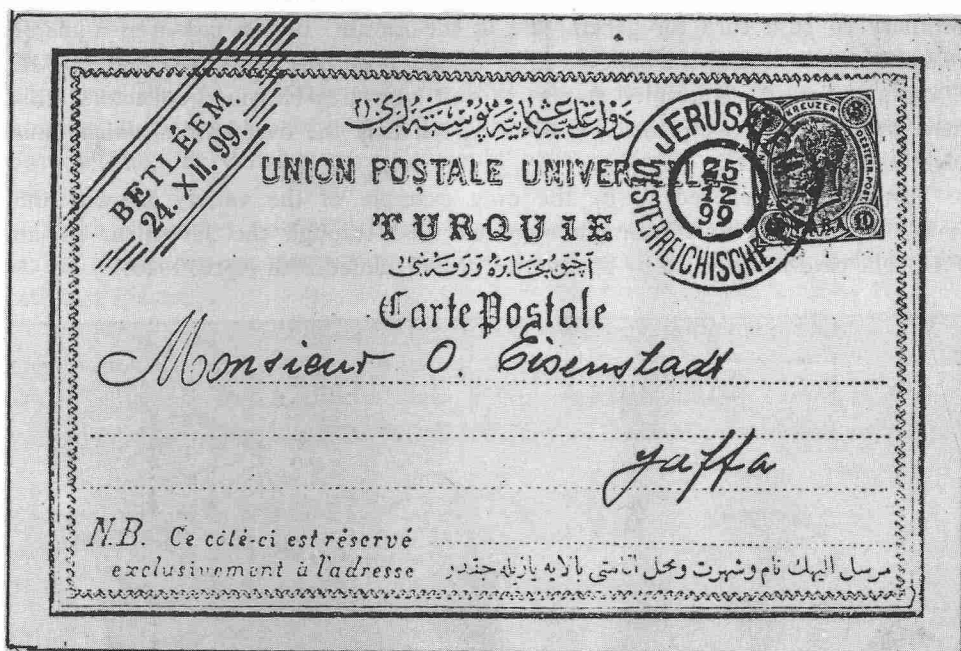 BETLÉEM.
24. XII. 99.
دولت علیه عثمانیه پوسته لری
UNION POSTALE UNIVERSELLE
TURQUIE
آچیق مخابره ورقه سی
Carte Postale
JERUSALEM
25
12
99
OESTERREICHISCHE
KREUZER
OESTERR.POST
8
10
Monsieur O. Eisenstadt
Jaffa
N.B. Ce côté-ci est réservé
exclusivement à l'adresse
مرسل الیهك نام وشهرت ومحل اقامتی بالایه یازیله جقدر